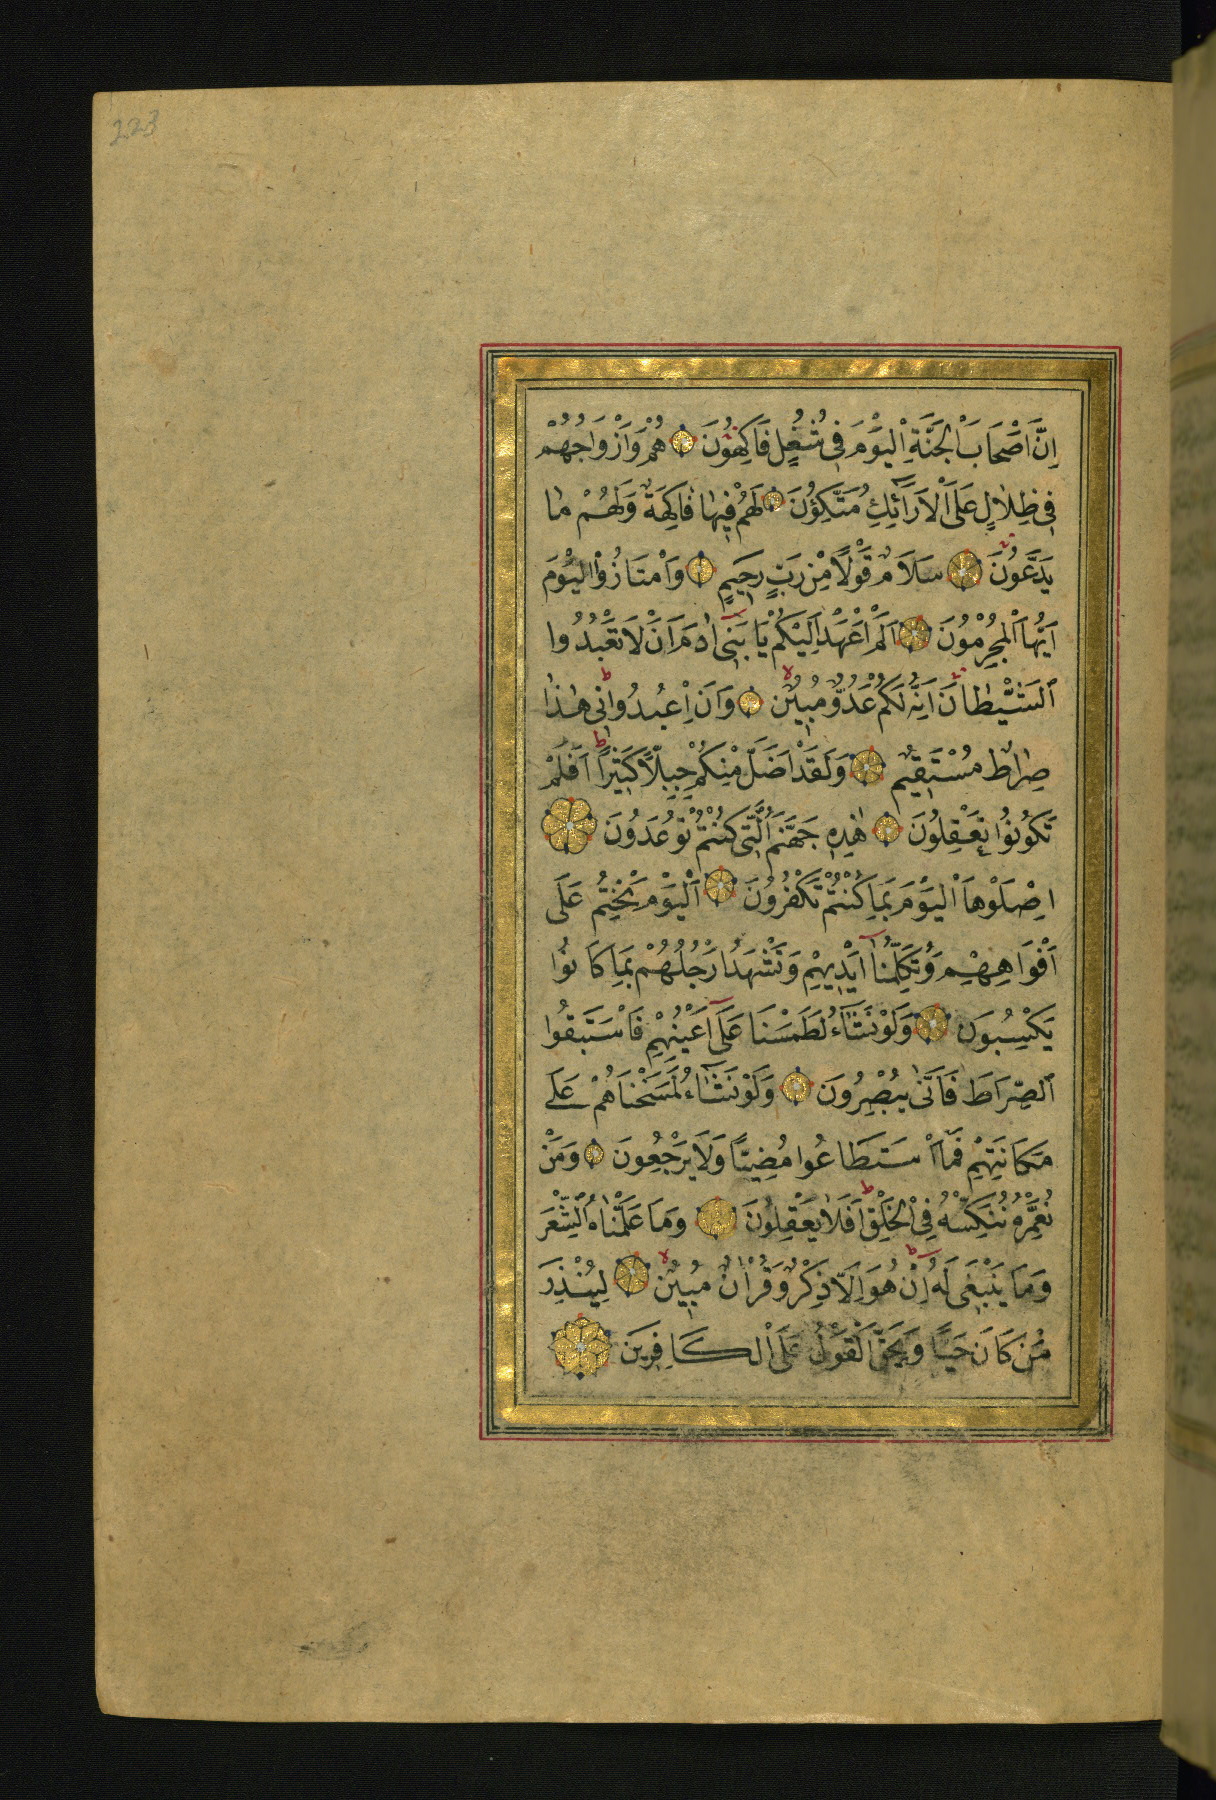 223
اِنَّ اَصْحَابَ الْجَنَّةِ الْيَوْمَ فِى شُغُلٍ فَاكِهُونَ هُمْ وَاَزْوَاجُهُمْ
فِى ظِلَالٍ عَلَى الْاَرَائِكِ مُتَّكِؤُنَ لَهُمْ فِيهَا فَاكِهَةٌ وَلَهُمْ مَا
يَدَّعُونَ سَلَامٌ قَوْلًا مِنْ رَبٍّ رَحِيمٍ وَامْتَازُوا الْيَوْمَ
اَيُّهَا الْمُجْرِمُونَ اَلَمْ اَعْهَدْ اِلَيْكُمْ يَا بَنِى اٰدَمَ اَنْ لَا تَعْبُدُوا
الشَّيْطَانَ اِنَّهُ لَكُمْ عَدُوٌّ مُبِينٌ وَاَنِ اعْبُدُوانِى هٰذَا
صِرَاطٌ مُسْتَقِيمٌ وَلَقَدْ اَضَلَّ مِنْكُمْ جِبِلًّا كَثِيرًا اَفَلَمْ
تَكُونُوا تَعْقِلُونَ هٰذِهِ جَهَنَّمُ الَّتِى كُنْتُمْ تُوعَدُونَ
اِصْلَوْهَا الْيَوْمَ بِمَا كُنْتُمْ تَكْفُرُونَ اَلْيَوْمَ نَخْتِمُ عَلَى
اَفْوَاهِهِمْ وَتُكَلِّمُنَا اَيْدِيهِمْ وَتَشْهَدُ اَرْجُلُهُمْ بِمَا كَانُوا
يَكْسِبُونَ وَلَوْ نَشَاءُ لَطَمَسْنَا عَلَى اَعْيُنِهِمْ فَاسْتَبَقُوا
الصِّرَاطَ فَاَنَّى يُبْصِرُونَ وَلَوْ نَشَاءُ لَمَسَخْنَاهُمْ عَلَى
مَكَانَتِهِمْ فَمَا اسْتَطَاعُوا مُضِيًّا وَلَا يَرْجِعُونَ وَمَنْ
نُعَمِّرْهُ نُنَكِّسْهُ فِى الْخَلْقِ اَفَلَا يَعْقِلُونَ وَمَا عَلَّمْنَاهُ الشِّعْرَ
وَمَا يَنْبَغِى لَهُ اِنْ هُوَ اِلَّا ذِكْرٌ وَقُرْاٰنٌ مُبِينٌ لِيُنْذِرَ
مَنْ كَانَ حَيًّا وَيَحِقَّ الْقَوْلُ عَلَى الْكَافِرِينَ